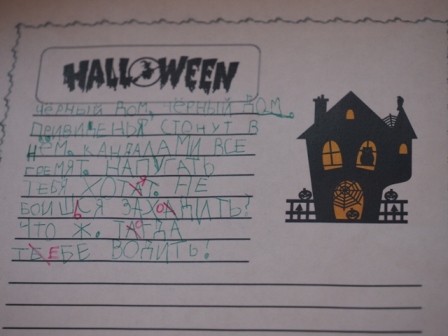 HALLOWEEN
ЧЁРНЫЙ ДОМ, ЧЁРНЫЙ ДОМ.
ПРИВИДЕНЬЯ СТОНУТ В
НЁМ. КАНДАЛАМИ ВСЕ
ГРЕМЯТ. НАПУГАТЬ
ТЕБЯ ХОТЯТ. НЕ
БОИШЬСЯ ЗАХОДИТЬ?
ЧТО Ж, ТОГДА
ТЕБЕ ВОДИТЬ!